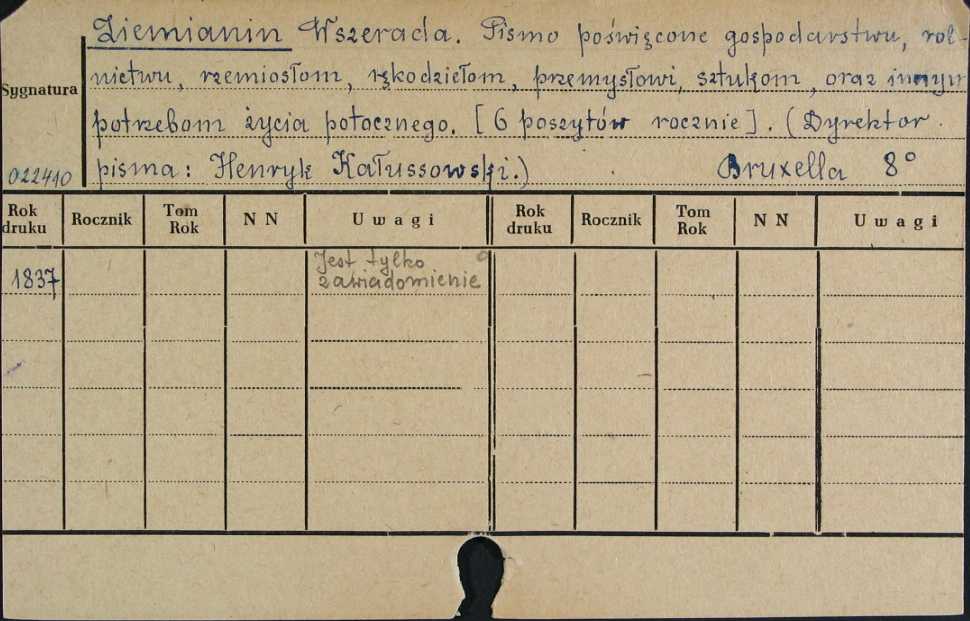 Ziemianin Wszerada. Pismo poświęcone gospodarstwu, rol-
nictwu, rzemiosłom, rękodziełom, przemysłowi, sztukom, oraz innym
Sygnatura
potrzebom życia potocznego. [6 poszytów rocznie]. (Dyrektor
022410 pisma: Henryk Kałussowski.) Bruxella 8°
Rok druku Rocznik Tom Rok N N Uwagi Rok druku Rocznik Tom Rok N N Uwagi
Jest tylko
1837 zawiadomienie